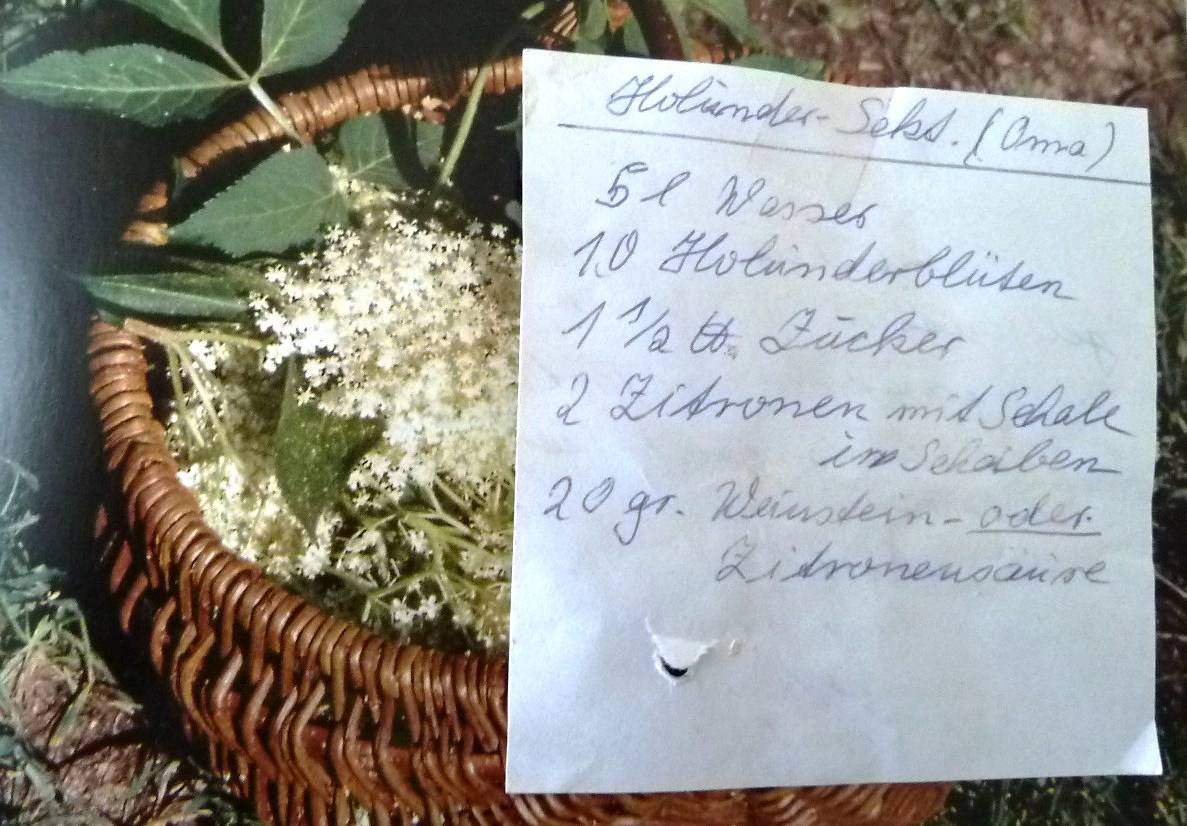 Holunder-Sekt. (Oma)
5 l Wasser
10 Holunderblüten
1 1/2 ℔. Zucker
2 Zitronen mit Schale
in Scheiben
20 gr. Weinstein- oder
Zitronensäure